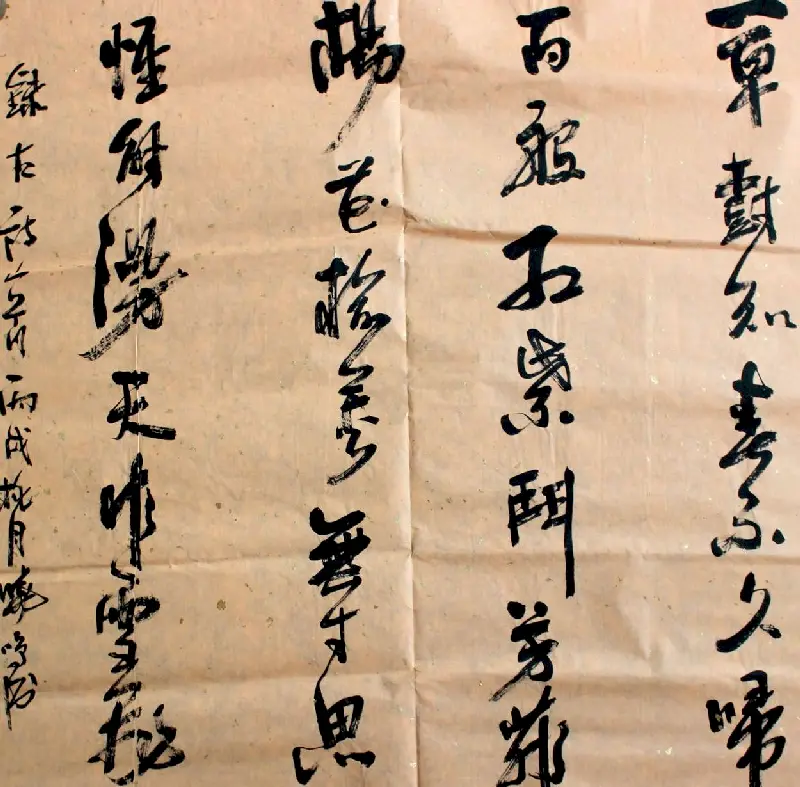 草樹知春不久歸
百般紅紫鬥芳菲
楊花榆莢無才思
惟解漫天作雪飛
錄古詩一首丙戌桃月曉鳴